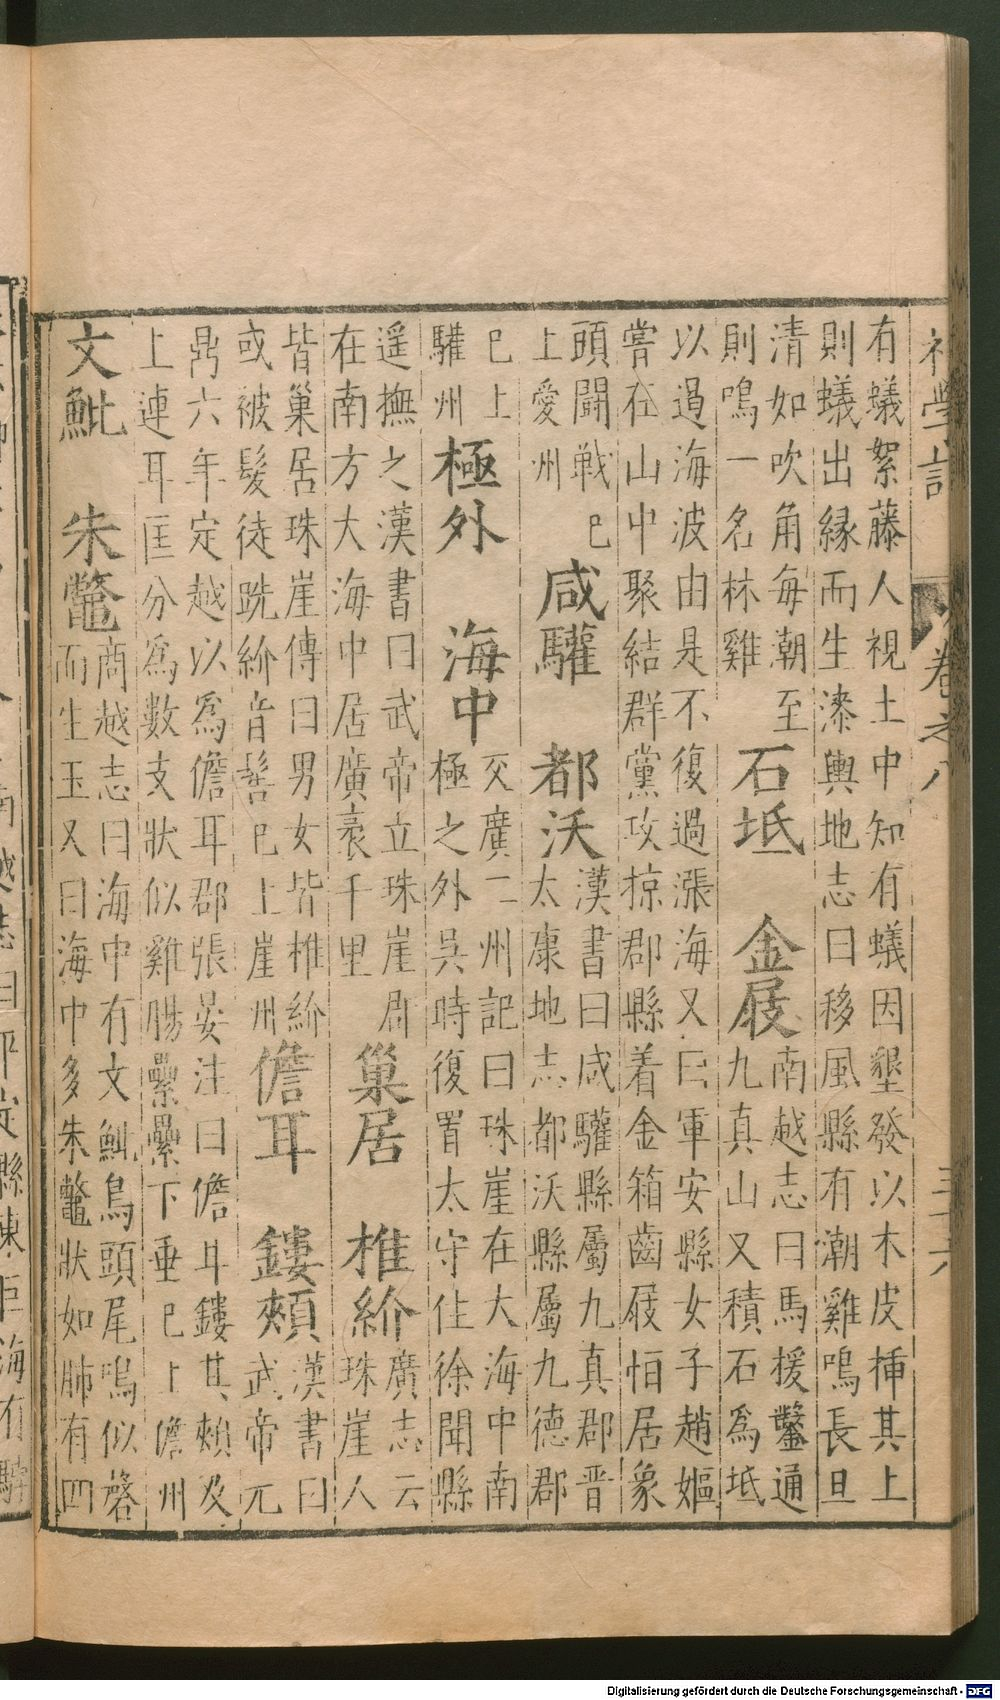 初學記 卷之八 三十六
有蟻絮藤人視土中知有蟻因墾發以木皮挿其上
則蟻出緣而生漆輿地志曰移風縣有潮雞鳴長旦
清如吹角每朝至
則鳴一名林雞
石坻 金屐
南越志曰馬援鑿通
九真山又積石爲坻
以遏海波由是不復過漲海又曰軍安縣女子趙嫗
嘗在山中聚結群黨攻掠郡縣着金箱齒屐怕居象
頭鬪戰已
上愛州
咸驩 都沃
漢書曰咸驩縣屬九真郡晋
太康地志都沃縣屬九德郡
已上
驩州
極外 海中
交廣二州記曰珠崖在大海中南
極之外吳時復置太守住徐聞縣
遥撫之漢書曰武帝立珠崖郡
在南方大海中居廣袤千里
巢居 椎紒
廣志云
珠崖人
皆巢居珠崖傳曰男女皆椎紒
或被髮徒跣紒音髻已上崖州
儋耳 鏤頰
漢書曰
武帝元
鼎六年定越以爲儋耳郡張晏注曰儋耳鏤其頰及
上連耳匡分爲數支狀似雞腸纍纍下垂已上儋州
文魮 朱鼈
商越志曰海中有文魮鳥頭尾鳴似磬
而生玉又曰海中多朱鼈狀如肺有四
縣東巨海有
Digitalisierung gefördert durch die Deutsche Forschungsgemeinschaft - DFG